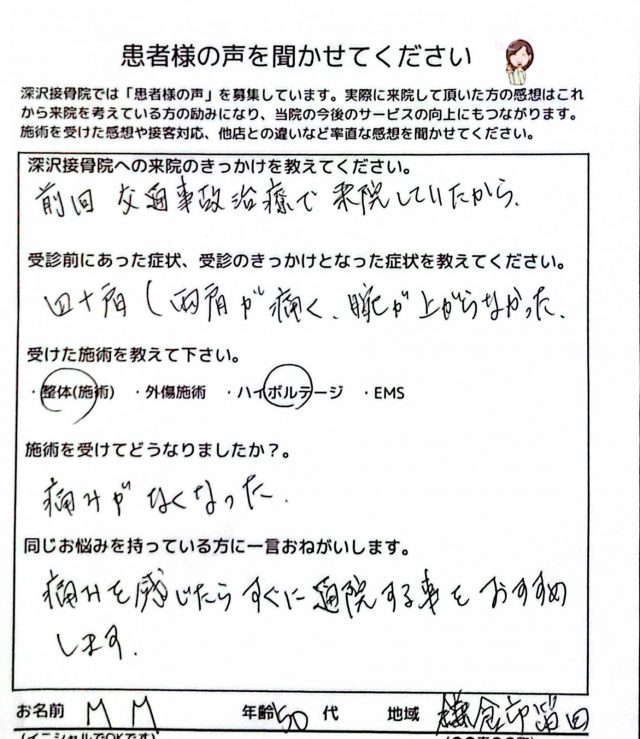 患者様の声を聞かせてください
深沢接骨院では「患者様の声」を募集しています。実際に来院して頂いた方の感想はこれ
から来院を考えている方の励みになり、当院の今後のサービスの向上にもつながります。
施術を受けた感想や接客対応、他店との違いなど率直な感想を聞かせてください。
深沢接骨院への来院のきっかけを教えてください。
前回 交通事故治療で 来院していたから.
受診前にあった症状、受診のきっかけとなった症状を教えてください。
四十肩 ( 両肩が痛く、腕が上がらなかった.
受けた施術を教えて下さい。
・整体(施術) ・外傷施術 ・ハイボルテージ ・EMS
施術を受けてどうなりましたか?。
痛みがなくなった.
同じお悩みを持っている方に一言おねがいします。
痛みを感じたらすぐに通院する事をおすすめ
します.
お名前 M M 年齢 50 代 地域 鎌倉市笛田
(イニシャルでOKです)